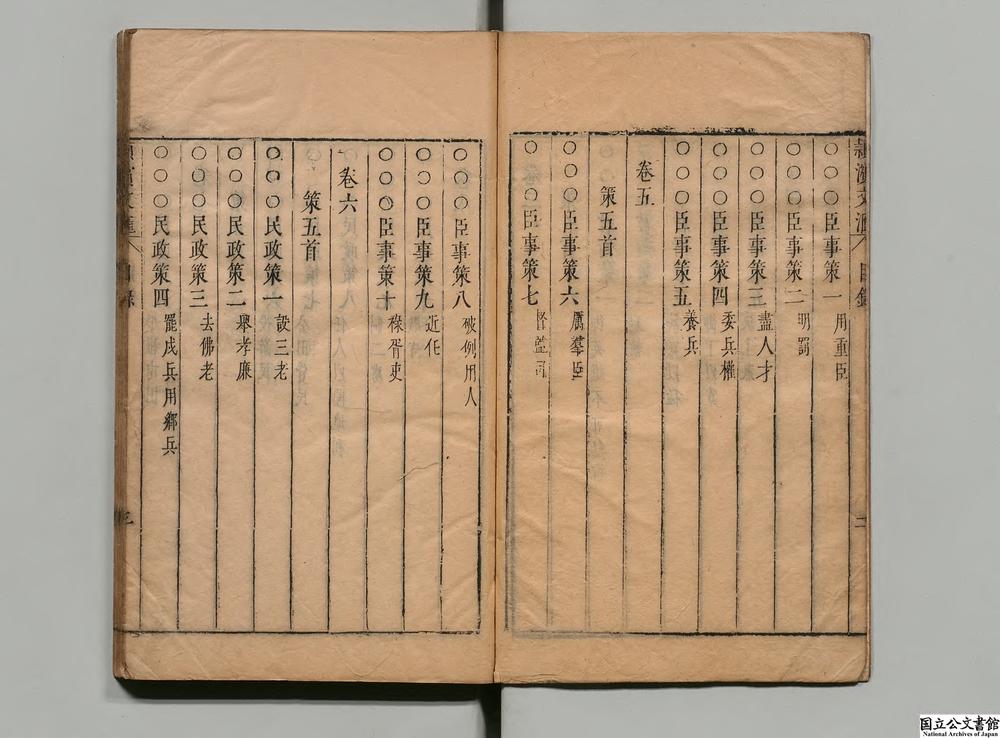 ○○○臣事策一 用重臣
○○○臣事策二 明罰
○○○臣事策三 盡人才
○○○臣事策四 委兵權
○○○臣事策五 養兵
卷五
策五首
○○○臣事策六 厲羣臣
○○○臣事策七 督監司
○○○臣事策八 破例用人
○○○臣事策九 近任
○○○臣事策十 祿胥吏
卷六
策五首
○○○民政策一 設三老
○○○民政策二 舉孝廉
○○○民政策三 去佛老
○○○民政策四 罷戍兵用鄉兵
二
三
国立公文書館
National Archives of Japan